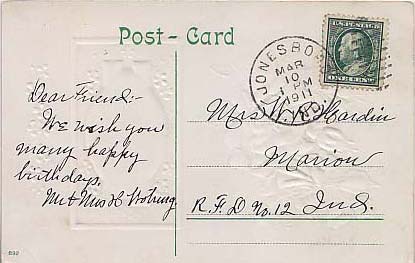 Post-Card
U.S. POSTAGE
ONE CENT
JONESBORO
MAR
10
1 PM
1911
IND.
Dear Friend:-
We wish you
many happy
birthdays.
Mr & Mrs
Mrs Wm Hardin
Marion
R.F.D No. 12 Ind.
832